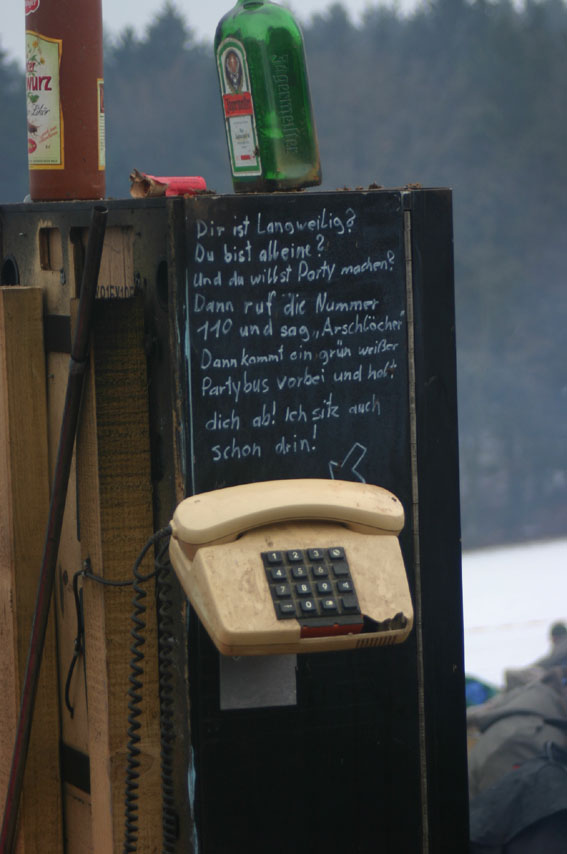 urz
Jägermeister
Jägermeister
Dir ist Langweilig?
Du bist alleine?
Und du willst Party machen?
Dann ruf die Nummer
110 und sag „Arschlöcher"
Dann kommt ein grün weißer
Partybus vorbei und holt
dich ab! Ich sitz auch
schon drin!
1 2 3
4 5 6
7 8 9
0